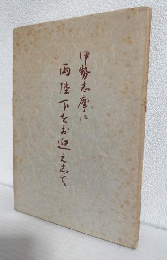 伊勢志摩に
両陛下をお迎えして